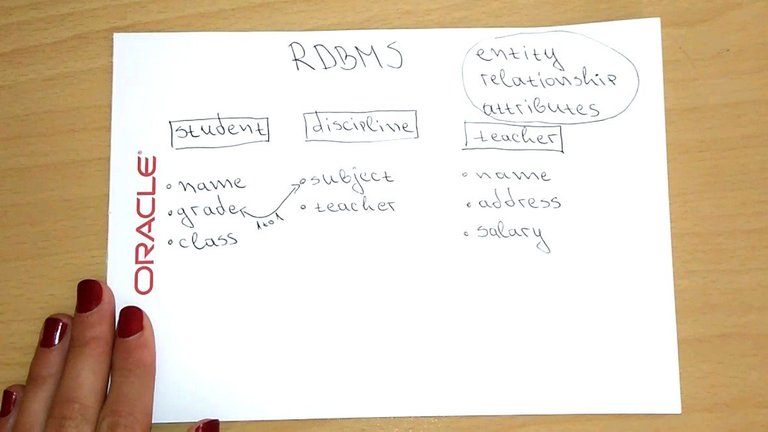 RDBMS
entity
relationship
attributes
student
discipline
teacher
name
grade
class
1 to 1
subject
teacher
name
address
salary
ORACLE®